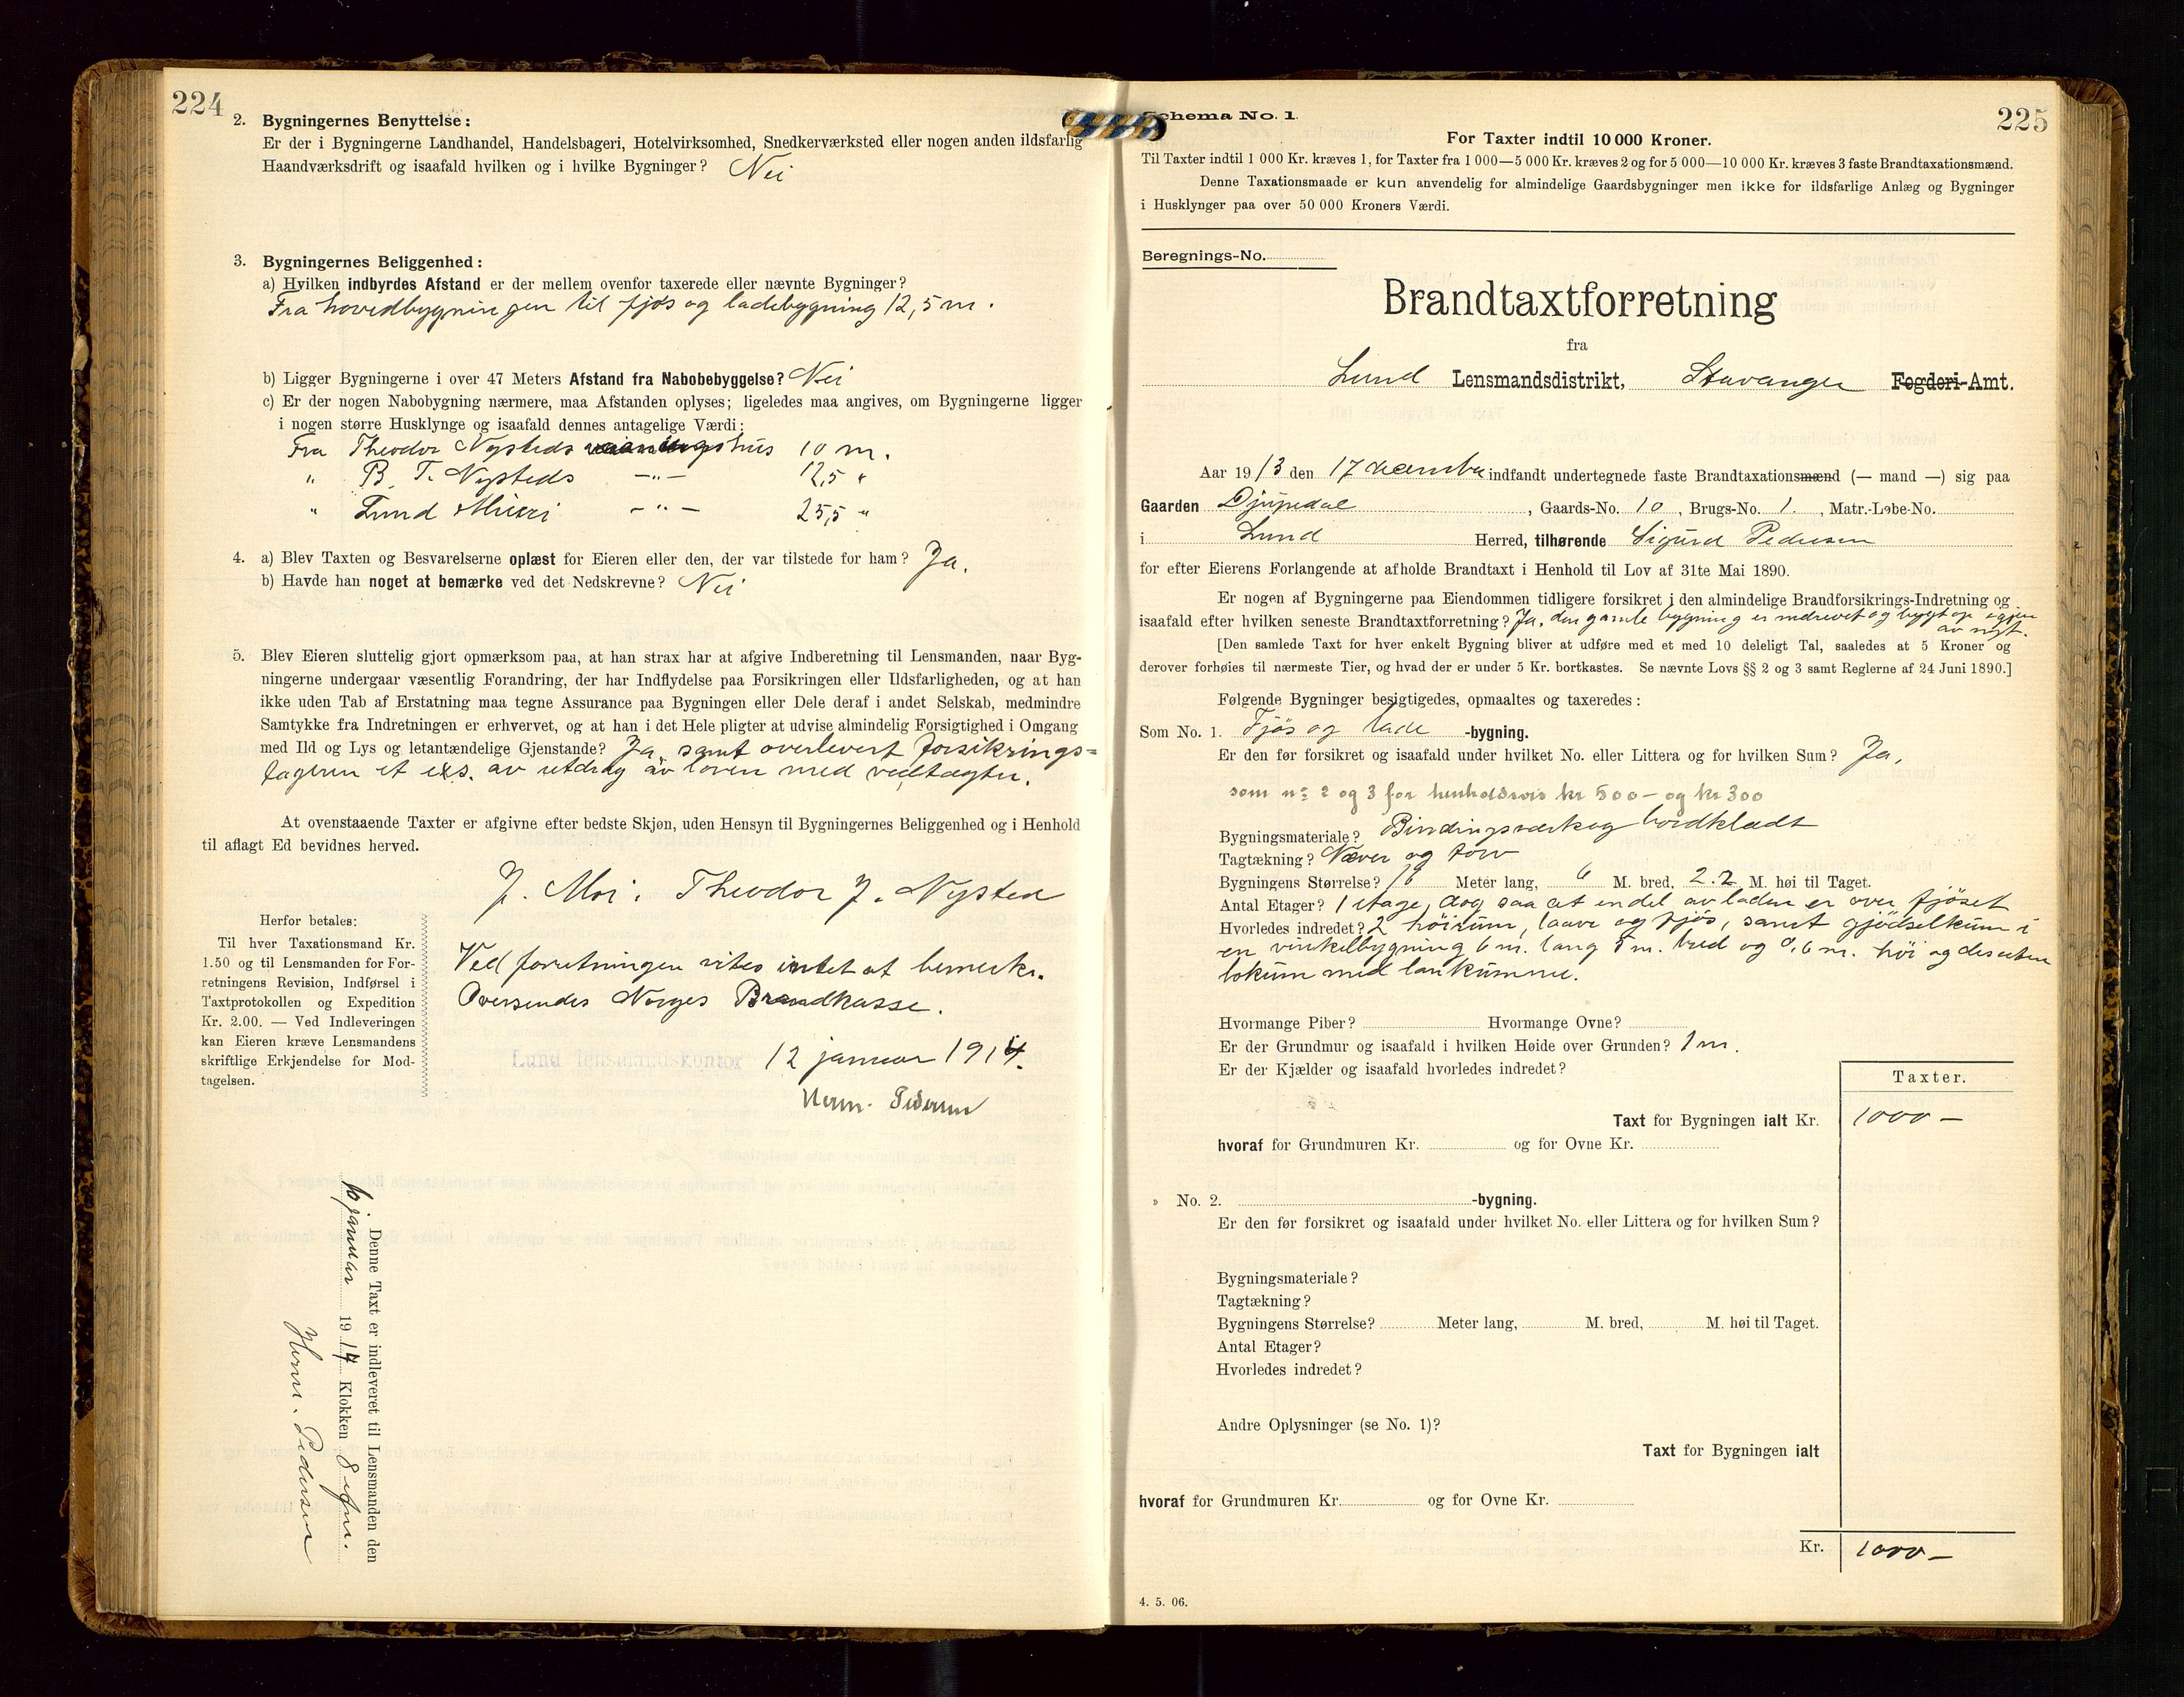 224
2. Bygningernes Benyttelse:
Er der i Bygningerne Landhandel, Handelsbageri, Hotelvirksomhed, Snedkerværksted eller nogen anden ildsfarlig
Haandværksdrift og isaafald hvilken og i hvilke Bygninger? Nei
3. Bygningernes Beliggenhed:
a) Hvilken indbyrdes Afstand er der mellem ovenfor taxerede eller nævnte Bygninger?
Fra hovedbygningen til fjøs og ladebygning 12,5 m.
b) Ligger Bygningerne i over 47 Meters Afstand fra Nabobebyggelse? Nei
c) Er der nogen Nabobygning nærmere, maa Afstanden oplyses; ligeledes maa angives, om Bygningerne ligger
i nogen større Husklynge og isaafald dennes antagelige Værdi:
Fra Theodor Nysteds vaaningshus 10 m.
" B. T. Nysteds -"- 12,5 "
" Lund -"- 25,5 "
4. a) Blev Taxten og Besvarelserne oplæst for Eieren eller den, der var tilstede for ham? Ja.
b) Havde han noget at bemærke ved det Nedskrevne? Nei
5. Blev Eieren sluttelig gjort opmærksom paa, at han strax har at afgive Indberetning til Lensmanden, naar Byg-
ningerne undergaar væsentlig Forandring, der har Indflydelse paa Forsikringen eller Ildsfarligheden, og at han
ikke uden Tab af Erstatning maa tegne Assurance paa Bygningen eller Dele deraf i andet Selskab, medmindre
Samtykke fra Indretningen er erhvervet, og at han i det Hele pligter at udvise almindelig Forsigtighed i Omgang
med Ild og Lys og letantændelige Gjenstande? Ja, samt overlevert forsikrings-
tageren et exs. av utdrag av loven med vedtægter.
At ovenstaaende Taxter er afgivne efter bedste Skjøn, uden Hensyn til Bygningernes Beliggenhed og i Henhold
til aflagt Ed bevidnes herved.
J. Moi. Theodor J. Nysted
Herfor betales:
Til hver Taxationsmand Kr.
1.50 og til Lensmanden for For-
retningens Revision, Indførsel i
Taxtprotokollen og Expedition
Kr. 2.00. — Ved Indleveringen
kan Eieren kræve Lensmandens
skriftlige Erkjendelse for Mod-
tagelsen.
Ved forretningen vites intet at bemerke.
Oversendes Norges Brandkasse.
Lund lensmandskontor 12 januar 1914.
Herm. Pedersen
Denne Taxt er indleveret til Lensmanden den
10 januar 1914 Klokken 8 efm.
Herm. Pedersen
225
Schema No. 1.
For Taxter indtil 10 000 Kroner.
Til Taxter indtil 1 000 Kr. kræves 1, for Taxter fra 1 000—5 000 Kr. kræves 2 og for 5 000—10 000 Kr. kræves 3 faste Brandtaxationsmænd.
Denne Taxationsmaade er kun anvendelig for almindelige Gaardsbygninger men ikke for ildsfarlige Anlæg og Bygninger
i Husklynger paa over 50 000 Kroners Værdi.
Beregnings-No.
Brandtaxtforretning
fra
Lund Lensmandsdistrikt, Stavanger Fogderi-Amt.
Aar 1913 den 17 december indfandt undertegnede faste Brandtaxationsmænd (— mand —) sig paa
Gaarden Djupedal, Gaards-No. 10, Brugs-No. 1., Matr.-Løbe-No.
i Lund Herred, tilhørende Sigurd Pedersen
for efter Eierens Forlangende at afholde Brandtaxt i Henhold til Lov af 31te Mai 1890.
Er nogen af Bygningerne paa Eiendommen tidligere forsikret i den almindelige Brandforsikrings-Indretning og
isaafald efter hvilken seneste Brandtaxtforretning? Ja, den gamle bygning er nedrevet og bygt op igjen
av nyt.
[Den samlede Taxt for hver enkelt Bygning bliver at udføre med et med 10 deleligt Tal, saaledes at 5 Kroner og
derover forhøies til nærmeste Tier, og hvad der er under 5 Kr. bortkastes. Se nævnte Lovs §§ 2 og 3 samt Reglerne af 24 Juni 1890.]
Følgende Bygninger besigtigedes, opmaaltes og taxeredes:
Som No. 1. Fjøs og lade -bygning.
Er den før forsikret og isaafald under hvilket No. eller Littera og for hvilken Sum? Ja,
som no 2 og 3 for henholdsvis kr 500- og kr 300
Bygningsmateriale? Bindingsverk og bordklædt
Tagtækning? Næver og torv
Bygningens Størrelse? 16 Meter lang, 6 M. bred, 2.2 M. høi til Taget.
Antal Etager? 1 etage, dog saa at endel av laden er over fjøset
Hvorledes indredet? 2 høirum, laave og fjøs, samt gjødselkum i
en vinkelbygning 6 m. lang 5 m. bred og 2,6 m. høi og desuten
lokum med lankumme.
Hvormange Piber? Hvormange Ovne?
Er der Grundmur og isaafald i hvilken Høide over Grunden? 1 m.
Er der Kjælder og isaafald hvorledes indredet?
Taxter.
Taxt for Bygningen ialt Kr. 1000 —
hvoraf for Grundmuren Kr. og for Ovne Kr.
» No. 2. -bygning.
Er den før forsikret og isaafald under hvilket No. eller Littera og for hvilken Sum?
Bygningsmateriale?
Tagtækning?
Bygningens Størrelse? Meter lang, M. bred, M. høi til Taget.
Antal Etager?
Hvorledes indredet?
Andre Oplysninger (se No. 1)?
Taxt for Bygningen ialt
hvoraf for Grundmuren Kr. og for Ovne Kr.
Kr. 1000 —
4. 5. 06.